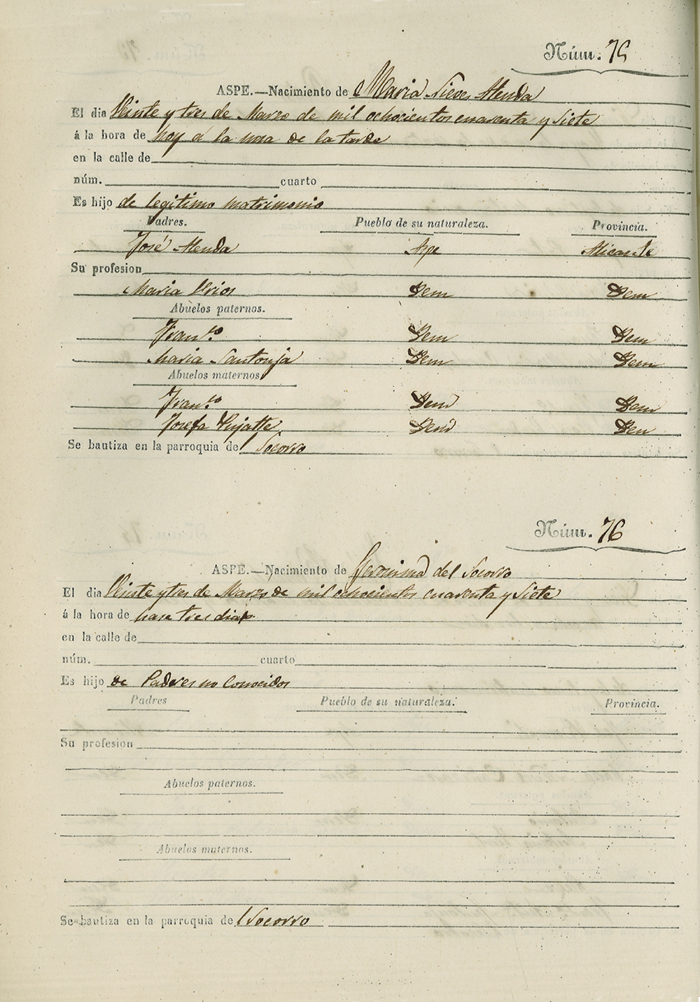 Núm. 75
ASPE.—Nacimiento de Maria Nieves Alenda
El dia Veinte y tres de Marzo de mil ochocientos cuarenta y siete
á la hora de hoy a la una de la tarde
en la calle de
núm. cuarto
Es hijo de legitimo matrimonio
Padres. Puebla de su naturaleza. Provincia.
José Alenda Aspe Alicante
Su profesion
Maria Urios Idem Idem
Abuelos paternos.
Fran.co Idem Idem
Maria Santonja Idem Idem
Abuelos maternos.
Fran.co Idem Idem
Josefa Idem Idem
Se bautiza en la parroquia de Socorro
Núm. 76
ASPE.—Nacimiento de Geronima del Socorro
El dia Veinte y tres de Marzo de mil ochocientos cuarenta y siete
á la hora de hase tres dias
en la calle de
núm. cuarto
Es hijo de Padres no Conocidos
Padres Pueblo de su naturaleza. Provincia.
Su profesion
Abuelos paternos.
Abuelos maternos.
Se bautiza en la parroquia de Socorro